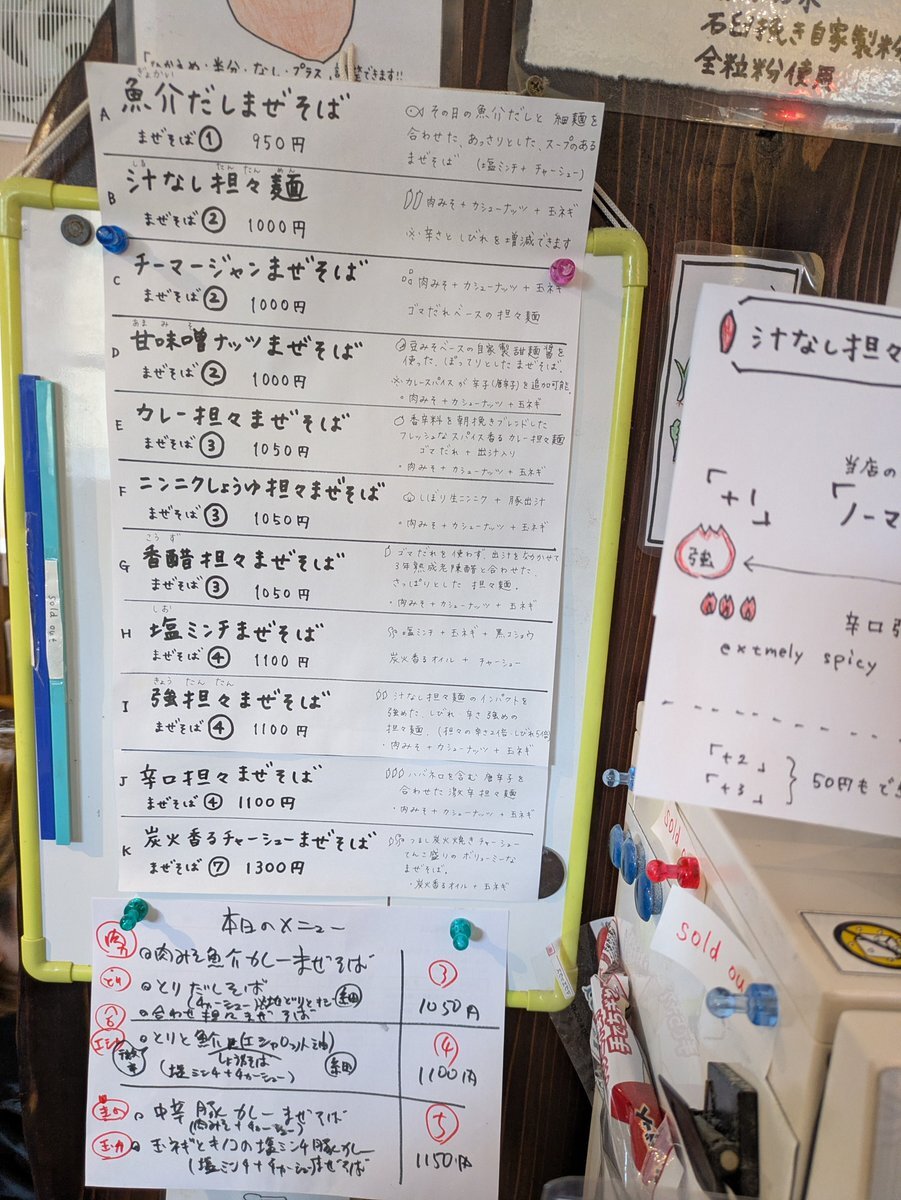 石臼挽き自家製粉
全粒粉使用
A 魚介だしまぜそば
ぎょかい
まぜそば ① 950円
その日の魚介だしと細麺を
合わせた、あっさりとした、スープのある
まぜそば (塩ミンチ + チャーシュー)
B 汁なし担々麺
しる たん たん めん
まぜそば ② 1000円
肉みそ + カシューナッツ + 玉ネギ
※辛さとしびれを増減できます
C チーマージャンまぜそば
まぜそば ② 1000円
肉みそ + カシューナッツ + 玉ネギ
ゴマだれベースの担々麺
D 甘味噌ナッツまぜそば
あま み そ
まぜそば ② 1000円
豆みそベースの自家製甜麺醤を
使った、ぽってりとしたまぜそば。
※カレースパイスが辛子(唐辛子)を追加可能。
・肉みそ + カシューナッツ + 玉ネギ
E カレー担々まぜそば
まぜそば ③ 1050円
香辛料を朝挽きブレンドした
フレッシュなスパイス香るカレー担々麺
ゴマだれ + 出汁入り
・肉みそ + カシューナッツ + 玉ネギ
F ニンニクしょうゆ担々まぜそば
まぜそば ③ 1050円
しぼり生ニンニク + 豚出汁
・肉みそ + カシューナッツ + 玉ネギ
G 香醋担々まぜそば
こう ず
まぜそば ③ 1050円
ゴマだれを使わず、出汁をなかかせて
3年熟成老陳醋と合わせた、
さっぱりとした 担々麺。
・肉みそ + カシューナッツ + 玉ネギ
H 塩ミンチまぜそば
しお
まぜそば ④ 1100円
塩ミンチ + 玉ネギ + 黒コショウ
炭火香るオイル + チャーシュー
I 強担々まぜそば
きょう たん たん
まぜそば ④ 1100円
汁なし担々麺のインパクトを
強めた、しびれ・辛さ強めの
担々麺。(担々の辛さ2倍・しびれ5倍)
・肉みそ + カシューナッツ + 玉ネギ
J 辛口担々まぜそば
まぜそば ④ 1100円
ハバネロを含む唐辛子を
合わせた激辛担々麺
・肉みそ + カシューナッツ + 玉ネギ
K 炭火香るチャーシューまぜそば
まぜそば ⑦ 1300円
つるし炭火焼きチャーシュー
てんこ盛りのボリューミーな
まぜそば。
・炭火香るオイル + 玉ネギ
本日のメニュー
肉みそ魚介カレーまぜそば
とりだしそば
細
合わせ担々まぜそば
③
1050円
とりと魚介
しょうゆそば
(塩ミンチ+チャーシュー)
細
④
1100円
中華豚カレーまぜそば
(肉みそ+チャーシュー)
玉ネギとキノコの塩ミンチ豚カレー
(塩ミンチ+チャーシュー)まぜそば
⑤
1150円
汁なし担々
当店の
「+1」
「ノーマ
強
辛口
extmely spicy
「+2」
「+3」
50円
sold out
sold
sold ou